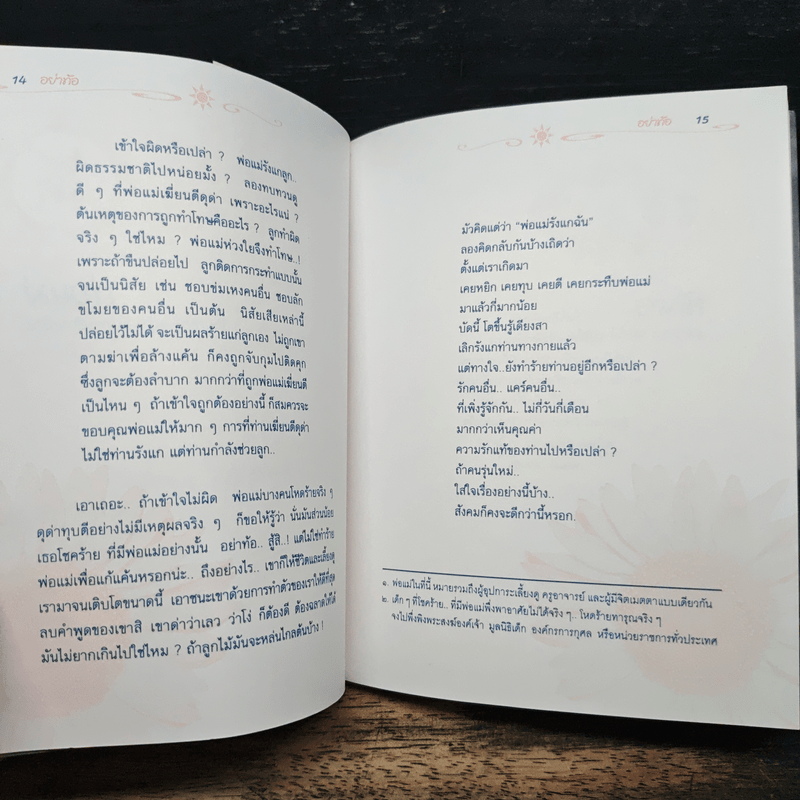 14 อย่าท้อ
เข้าใจผิดหรือเปล่า ? พ่อแม่รังแกลูก..
ผิดธรรมชาติไปหน่อยมั้ง ? ลองทบทวนดู
ดี ๆ ที่พ่อแม่เฆี่ยนตีดุด่า เพราะอะไรแน่ ?
ต้นเหตุของการถูกทำโทษคืออะไร ? ลูกทำผิด
จริง ๆ ใช่ไหม ? พ่อแม่ห่วงใยจึงทำโทษ..!
เพราะถ้าขืนปล่อยไป ลูกติดการกระทำแบบนั้น
จนเป็นนิสัย เช่น ชอบข่มเหงคนอื่น ชอบลัก
ขโมยของคนอื่น เป็นต้น นิสัยเสียเหล่านี้
ปล่อยไว้ไม่ได้ จะเป็นผลร้ายแก่ลูกเอง ไม่ถูกเขา
ตามฆ่าเพื่อล้างแค้น ก็คงถูกจับกุมไปติดคุก
ซึ่งลูกจะต้องลำบาก มากกว่าที่ถูกพ่อแม่เฆี่ยนตี
เป็นไหน ๆ ถ้าเข้าใจถูกต้องอย่างนี้ ก็สมควรจะ
ขอบคุณพ่อแม่ให้มาก ๆ การที่ท่านเฆี่ยนตีดุด่า
ไม่ใช่ท่านรังแก แต่ท่านกำลังช่วยลูก..
เอาเถอะ.. ถ้าเข้าใจไม่ผิด พ่อแม่บางคนโหดร้ายจริง ๆ
ดุด่าทุบตีอย่างไม่มีเหตุผลจริง ๆ ก็ขอให้รู้ว่า นั่นมันส่วนน้อย
เธอโชคร้าย ที่มีพ่อแม่อย่างนั้น อย่าท้อ.. สู้สิ..! แต่ไม่ใช่ทำร้าย
พ่อแม่เพื่อแก้แค้นหรอกน่ะ.. ถึงอย่างไร.. เขาก็ให้ชีวิตและเลี้ยงดู
เรามาจนเติบโตขนาดนี้ เอาชนะเขาด้วยการทำตัวของเราให้ดีที่สุด
ลบคำพูดของเขาสิ เขาด่าว่าเลว ว่าโง่ ก็ต้องดี ต้องฉลาดให้ได้
มันไม่ยากเกินไปใช่ไหม ? ถ้าลูกไม้มันจะหล่นไกลต้นบ้าง !
อย่าท้อ 15
มัวคิดแต่ว่า “พ่อแม่รังแกฉัน”
ลองคิดกลับกันบ้างเถิดว่า
ตั้งแต่เราเกิดมา
เคยหยิก เคยทุบ เคยตี เคยกระทืบพ่อแม่
มาแล้วก็มากน้อย
บัดนี้ โตขึ้นรู้เดียงสา
เลิกรังแกท่านทางกายแล้ว
แต่ทางใจ..ยังทำร้ายท่านอยู่อีกหรือเปล่า ?
รักคนอื่น.. แคร์คนอื่น..
ที่เพิ่งรู้จักกัน.. ไม่กี่วันกี่เดือน
มากกว่าเห็นคุณค่า
ความรักแท้ของท่านไปหรือเปล่า ?
ถ้าคนรุ่นใหม่..
ใส่ใจเรื่องอย่างนี้บ้าง..
สังคมก็คงจะดีกว่านี้หรอก.
๑. พ่อแม่ในที่นี้ หมายรวมถึงผู้อุปการะเลี้ยงดู ครูอาจารย์ และผู้มีจิตเมตตาแบบเดียวกัน
๒. เด็ก ๆ ที่โชคร้าย.. ที่มีพ่อแม่พึ่งพาอาศัยไม่ได้จริง ๆ.. โหดร้ายทารุณจริง ๆ
จงไปพึ่งพิงพระสงฆ์องค์เจ้า มูลนิธิเด็ก องค์กรการกุศล หรือหน่วยราชการทั่วประเทศ